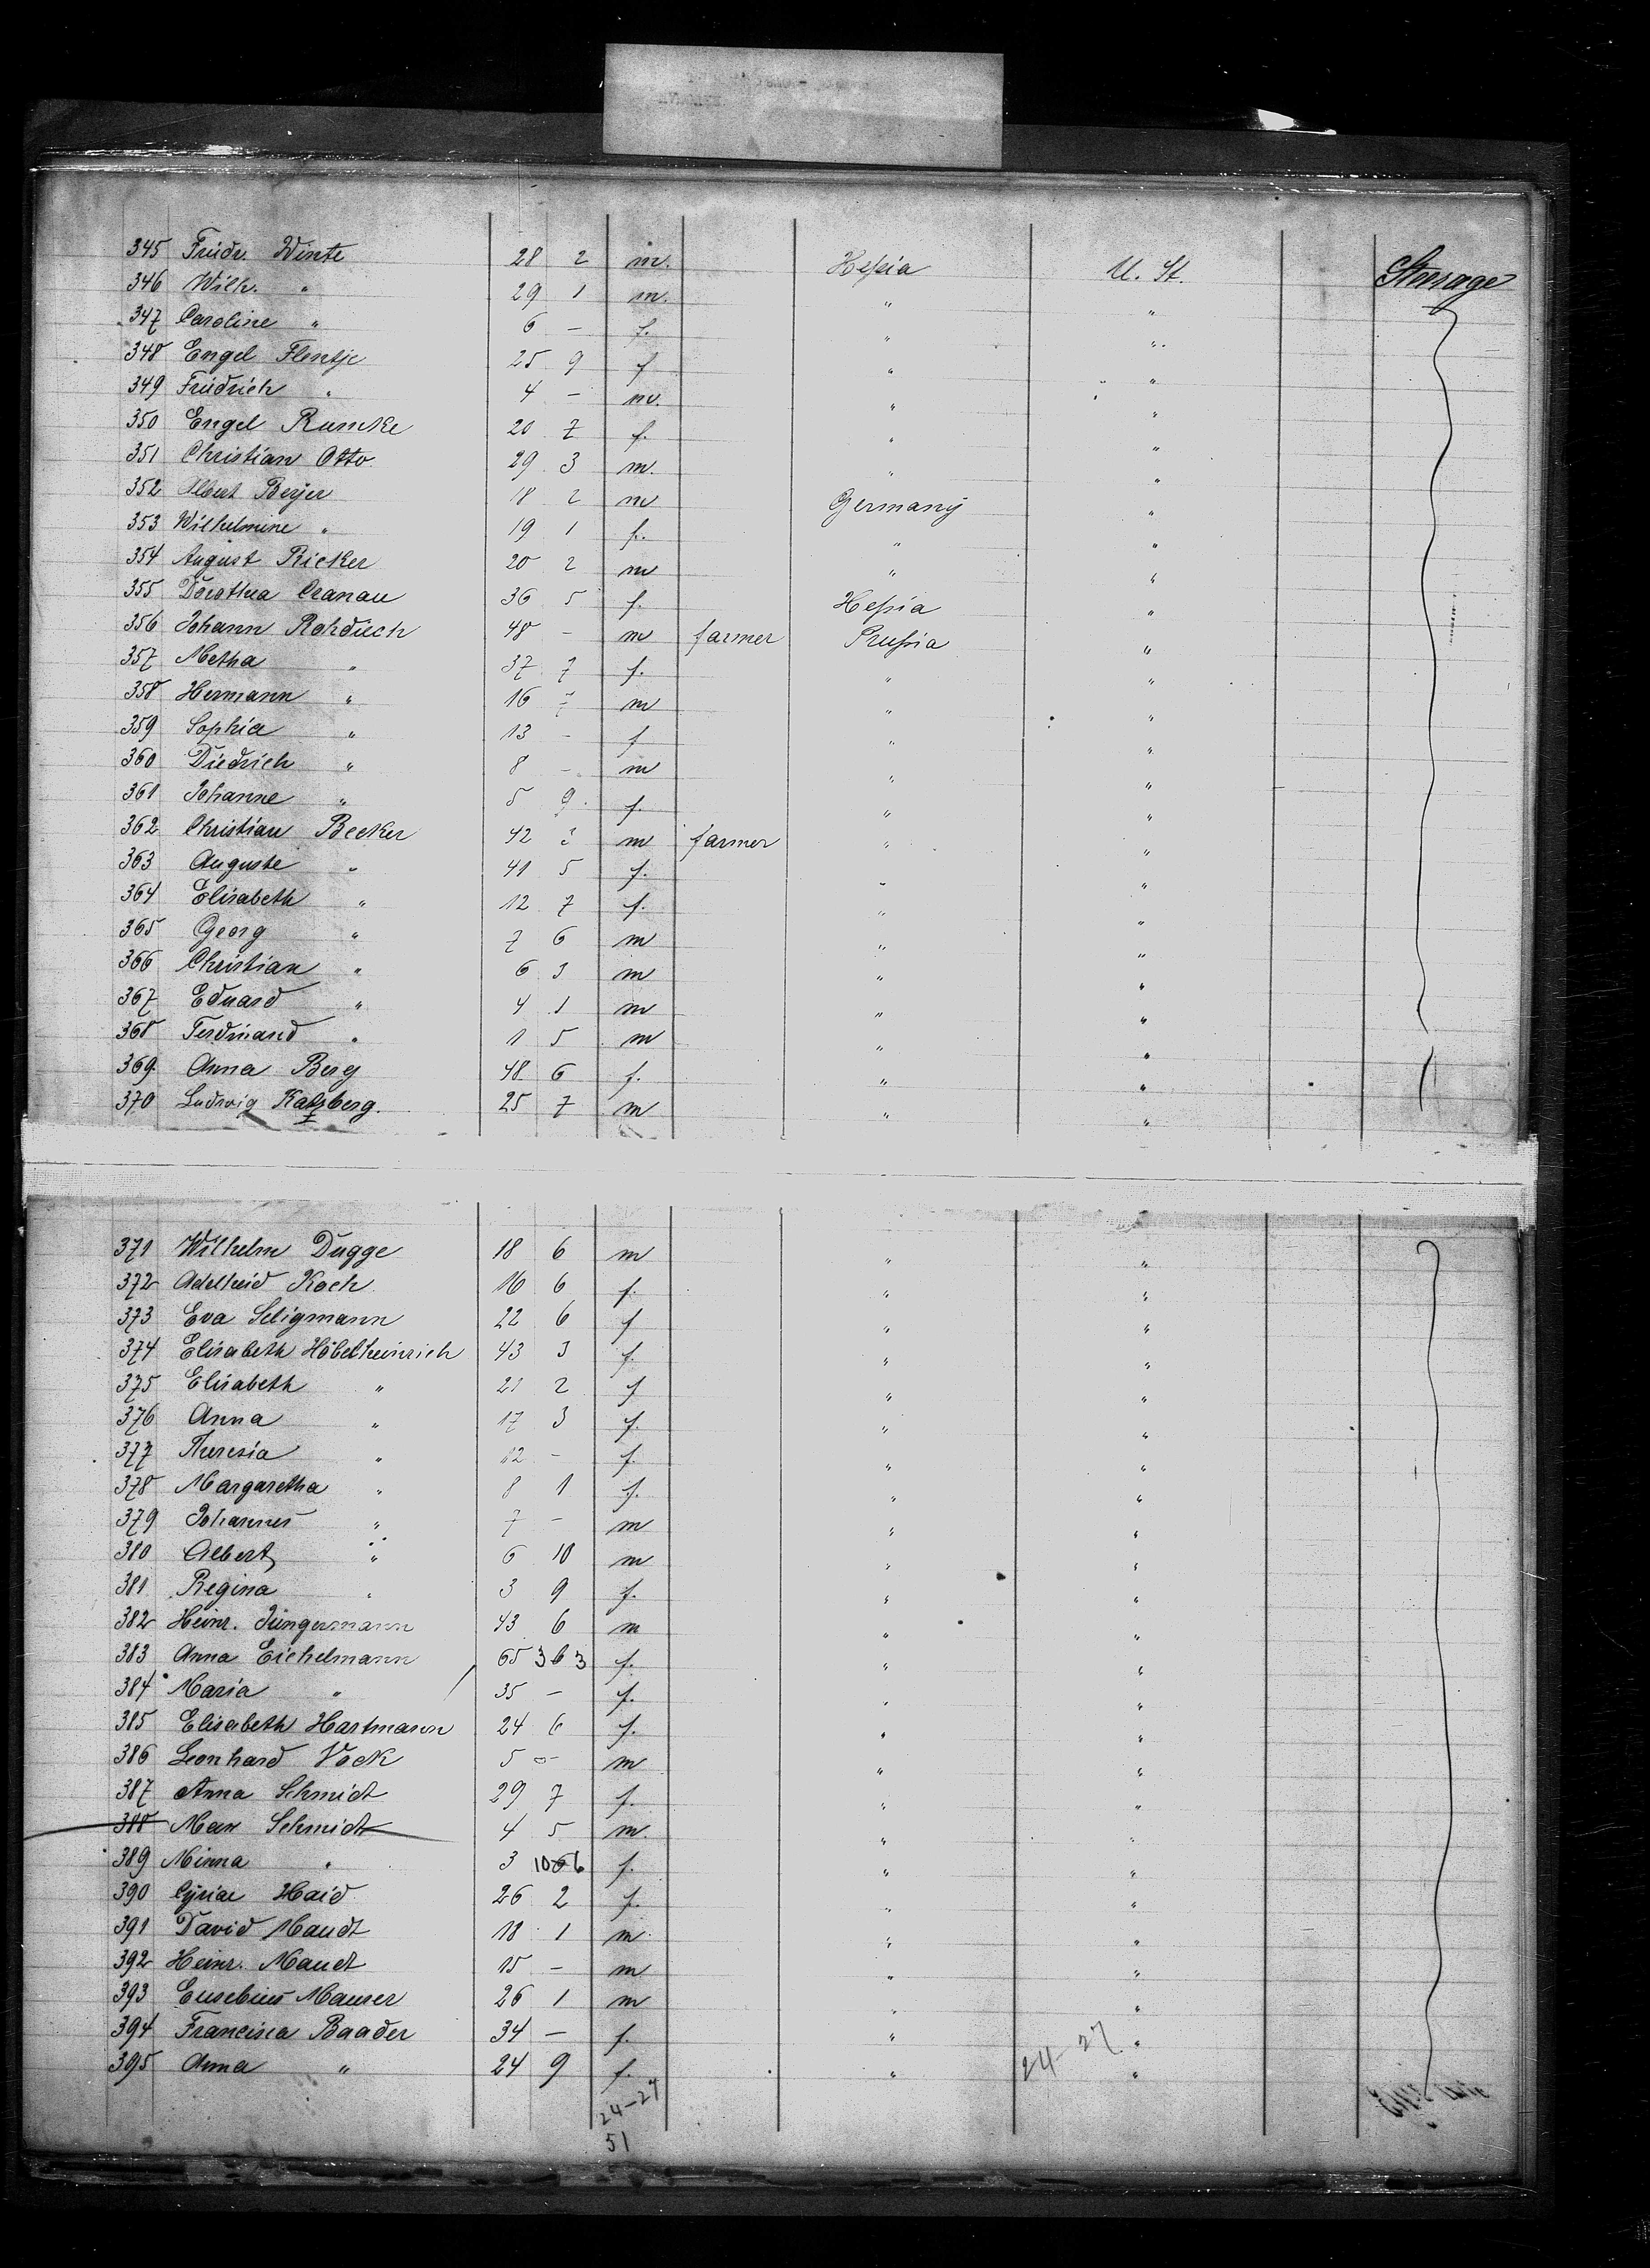 345 Friedr. Winte 28 2 m. Heßia U. St. Steerage
346 Wilh. " 29 1 m. " "
347 Caroline " 6 - f. " "
348 Engel Flentje 25 9 f " "
349 Friedrich " 4 - m. " "
350 Engel Rumcke 20 7 f. " "
351 Christian Otto 29 3 m. " "
352 Albert Beyer 18 2 m Germany "
353 Wilhelmine " 19 1 f. " "
354 August Ricker 20 2 m " "
355 Dorothea Cranau 36 5 f. Heßia "
356 Johann Rohdiech 48 - m farmer Prußia "
357 Metha " 37 7 f. " "
358 Hermann " 16 m " "
359 Sophia " 13 - f " "
360 Diedrich " 8 - m " "
361 Johanne " 5 9 f. " "
362 Christian Becker 42 m farmer " "
363 Auguste " 41 5 f. " "
364 Elisabeth " 12 7 f. " "
365 Georg " 7 6 m " "
366 Christian " 6 3 m " "
367 Eduard " 4 1 m " "
368 Ferdinand " 1 5 m " "
369 Anna Berg 48 6 f. " "
370 Ludwig Katzberg. 25 7 m " "
371 Wilhelm Dugge 18 6 m " "
372 Adelheid Koch 16 6 f. " "
373 Eva Seligmann 22 6 f " "
374 Elisabeth Höbelheinrich 43 3 f. " "
375 Elisabeth " 21 2 f " "
376 Anna " 17 3 f. " "
377 Theresia " 12 - f. " "
378 Margaretha " 8 1 f. " "
379 Johannes " 7 - m " "
380 Albert " 6 10 m " "
381 Regina " 3 9 f. " "
382 Heinr. Jüngermann 43 6 m " "
383 Anna Eichelmann 65 3 6 3 f. " "
384 Maria " 35 - f. " "
385 Elisabeth Hartmann 24 6 f. " "
386 Leonhard Vock 5 - m " "
387 Anna Schmidt 29 7 f. " "
388 Max Schmidt 4 5 m. " "
389 Minna " 3 10 6 f. " "
390 Cyriac Haid 26 2 f. " "
391 David Maudt 18 1 m. " "
392 Heinr. Maudt 15 - m " "
393 Eusebius Mauser 26 1 m " "
394 Francisca Baader 34 - f. " "
395 Anna " 24 9 f. " 24-27 "
24-27
51